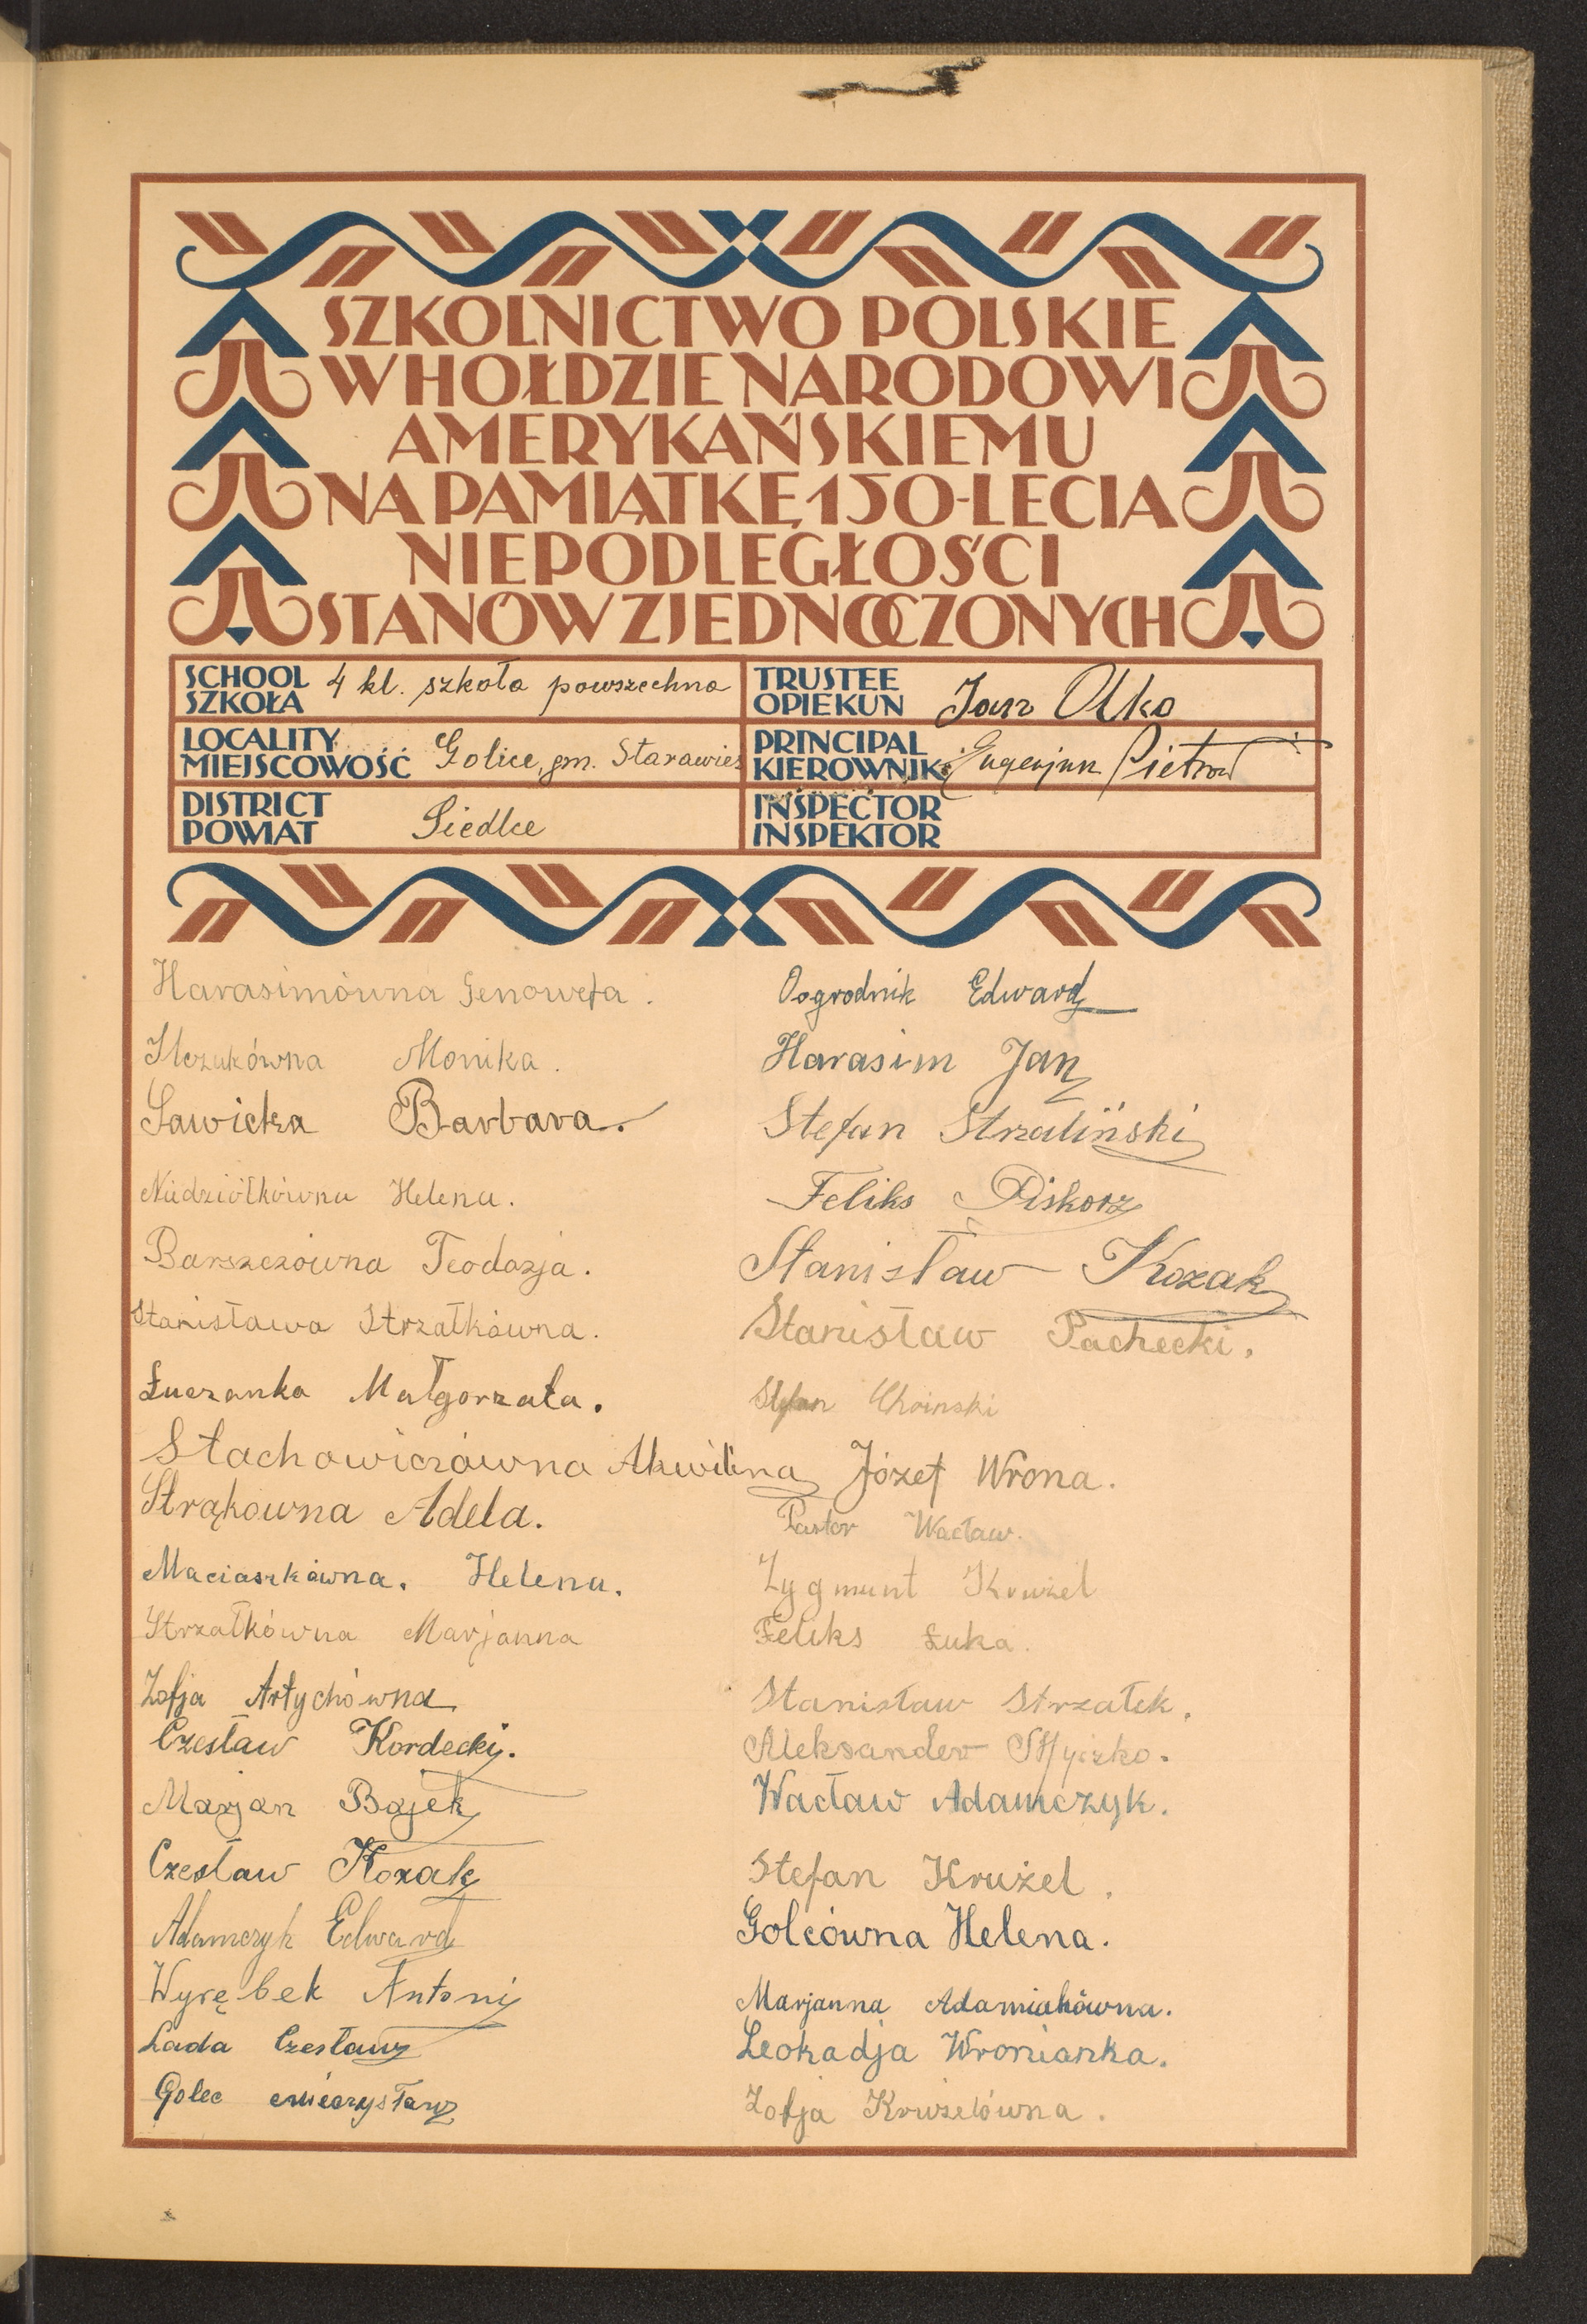 SZKOLNICTWO POLSKIE
W HOŁDZIE NARODOWI
AMERYKAŃSKIEMU
NA PAMIĄTKĘ 150-LECIA
NIEPODLEGŁOŚCI
STANÓW ZJEDNOCZONYCH
SCHOOL
SZKOŁA
4 kl. szkoła powszechna
TRUSTEE
OPIEKUN
Jan Olko
LOCALITY
MIEJSCOWOŚĆ
Golice, gm. Starawieś
PRINCIPAL
KIEROWNIK
Eugenjusz
DISTRICT
POWIAT
Siedlce
INSPECTOR
INSPEKTOR
Harasimówna Genowefa.
Ilczukówna Monika.
Sawicka Barbara.
Nadziółkówna Helena.
Barszczówna Teodozja.
Stanisława Strzałkówna.
Łuczanka Małgorzata.
Stachowiczówna Akwilina
Strąkowna Adela.
Maciaszkówna. Helena.
Strzałkówna Marjanna
Zofja Artychówna
Czesław Kordecki.
Marjan Bajek
Czesław Kozak
Adamczyk Edward
Wyrębek Antoni
Lada Czesław
Golec Mieczysław
Oogrodnik Edward
Harasim Jan
Stefan Strzaliński
Feliks Piskorz
Stanisław Kozak
Stanisław Pachecki.
Stefan Choinski
Józef Wrona.
Pastor Wacław.
Zygmunt Krużel
Feliks Łuka.
Stanisław Strzałek.
Aleksander
Wacław Adamczyk.
Stefan Krużel.
Golcówna Helena.
Marjanna Adamiakówna.
Leokadja Wronianka.
Zofja Krużelówna.